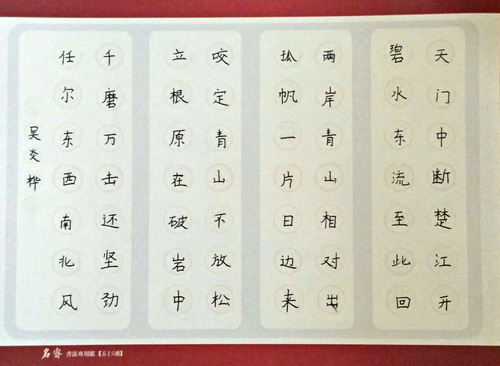 天门中断楚江开
碧水东流至此回
两岸青山相对出
孤帆一片日边来
咬定青山不放松
立根原在破岩中
千磨万击还坚劲
任尔东西南北风
吴炎桦
名睿 書法專用紙【五十六格】